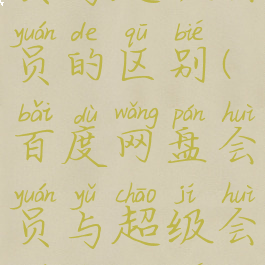 yuán de qū bié
员的区别(
bǎi dù wǎng pán huì
百度网盘会
yuán yǔ chāo jí huì
员与超级会